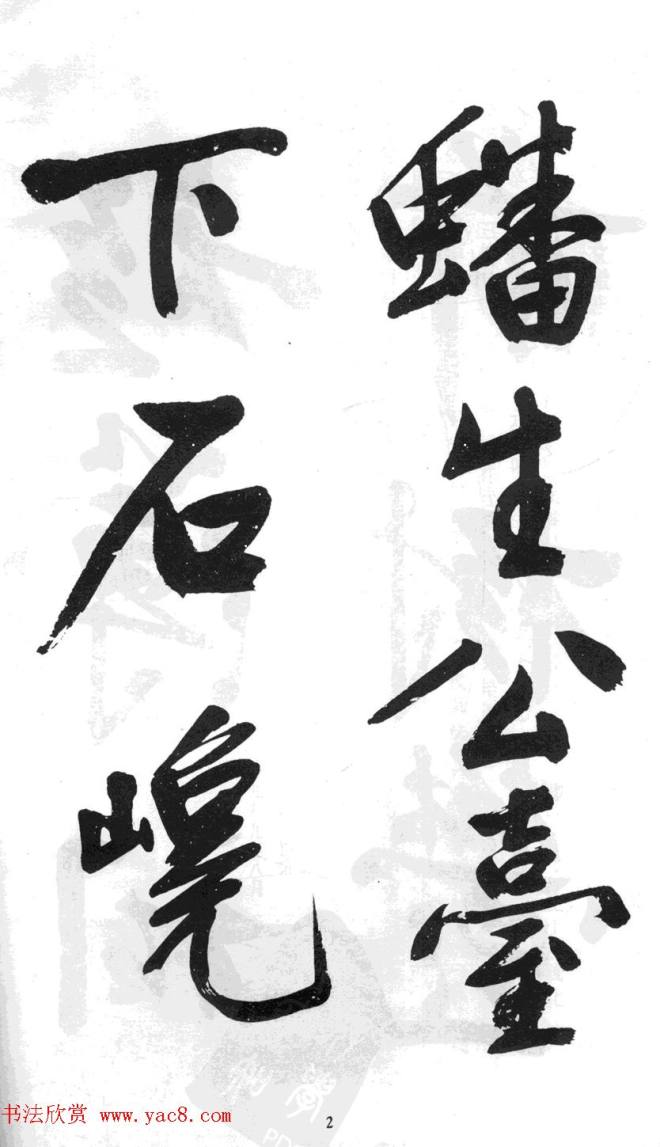 蟠生公臺
下石
2
书法欣赏 www.yac8.com